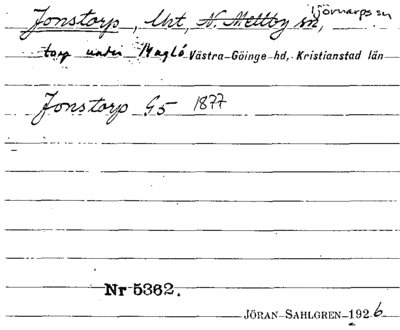 Jonstorp, Urt, N. Mellby sn, Tjörnarps sn
torp under Maglö Västra Göinge hd, Kristianstad län
Jonstorp G5 1877
Nr 5362.
JÖRAN SAHLGREN 1926